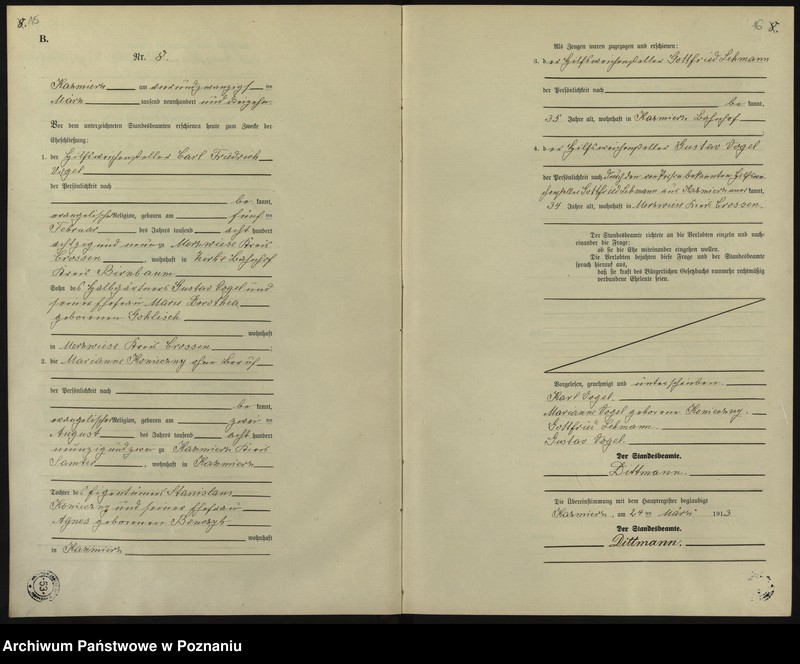 8.
B.
Nr. 8.
Kazmierz am vierundzwanzigsten
März tausend neunhundert und dreizehn.
Vor dem unterzeichneten Standesbeamten erschienen heute zum Zwecke der
Eheschließung:
1. der Hilfsweichensteller Carl Friedrich
Vogel
der Persönlichkeit nach
be kannt,
evangelischer Religion, geboren am fünften
Februar des Jahres tausend acht hundert
achtzig und neun zu Merzwiese Kreis
Crossen, wohnhaft in Bahnhof
Kreis Birnbaum
Sohn des Halbgärtners Gustav Vogel und
seiner Ehefrau Marie Dorothea
geborenen Gohlisch
wohnhaft
in Merzwiese Kreis Crossen;
2. die Marianne Konieczny ohne Beruf
der Persönlichkeit nach
be kannt,
evangelischer Religion, geboren am zwei ten
August des Jahres tausend acht hundert
neunzig und zwei zu Kazmierz Kreis
Samter, wohnhaft in Kazmierz
Tochter des Eigentümers Stanislaus
Konieczny und seiner Ehefrau
Agnes geborenen
wohnhaft
in Kazmierz
53
8.
Als Zeugen waren zugezogen und erschienen:
3. der Hilfsweichensteller Gottfried Lehmann
der Persönlichkeit nach
be kannt,
35 Jahre alt, wohnhaft in Kazmierz Bahnhof;
4. der Hilfsweichensteller Gustav Vogel
der Persönlichkeit nach durch den von Person bekannten Hilfswei-
chensteller Gottfried Lehmann aus Kazmierz anerkannt,
34 Jahre alt, wohnhaft in Merzwiese Kreis Crossen.
Der Standesbeamte richtete an die Verlobten einzeln und nach-
einander die Frage:
ob sie die Ehe miteinander eingehen wollen.
Die Verlobten bejahten diese Frage und der Standesbeamte
sprach hierauf aus,
daß sie kraft des Bürgerlichen Gesetzbuchs nunmehr rechtmäßig
verbundene Eheleute seien.
Vorgelesen, genehmigt und unterschrieben.
Karl Vogel.
Marianne Vogel geborene Konieczny.
Gottfried Lehmann.
Gustav Vogel.
Der Standesbeamte.
Dittmann.
Die Übereinstimmung mit dem Hauptregister beglaubigt
Kazmierz, am 24ten März 1913
Der Standesbeamte.
Dittmann.
Archiwum Państwowe w Poznaniu